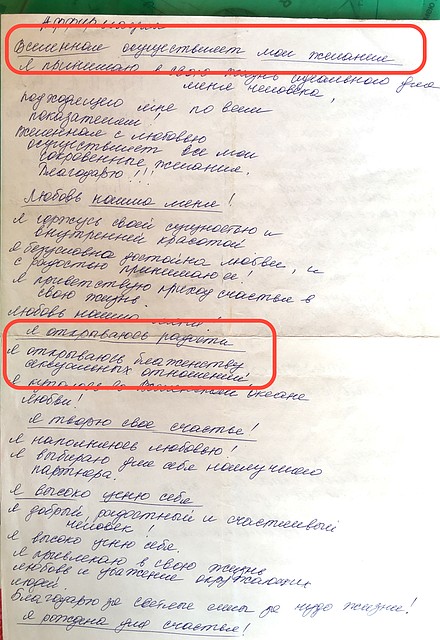 Аффирмации
Вселенная осуществляет мои желания
Я принимаю в свою жизнь идеального для
меня человека,
подходящего мне по всем
показателям!
Вселенная с любовью
осуществляет все мои
сокровенные желания.
Благодарю!!!
Любовь нашла меня!
Я горжусь своей сущностью и
внутренней красотой
Я безусловно достойна любви, и
с радостью принимаю её!
Я приветствую приход счастья в
свою жизнь.
Любовь нашла меня!
Я открываюсь радости
Я открываюсь блаженству
сексуальных отношений
Я купаюсь во вселенском океане
любви!
Я творю свое счастье!
Я наполняюсь любовью!
Я выбираю для себя наилучшего
партнера.
Я высоко ценю себя
Я добрый, радостный и счастливый
человек!
Я высоко ценю себя.
Я привлекаю в свою жизнь
любовь и уважение окружающих
людей.
Благодарю за светлые силы за чудо жизни!
Я рождена для счастья!